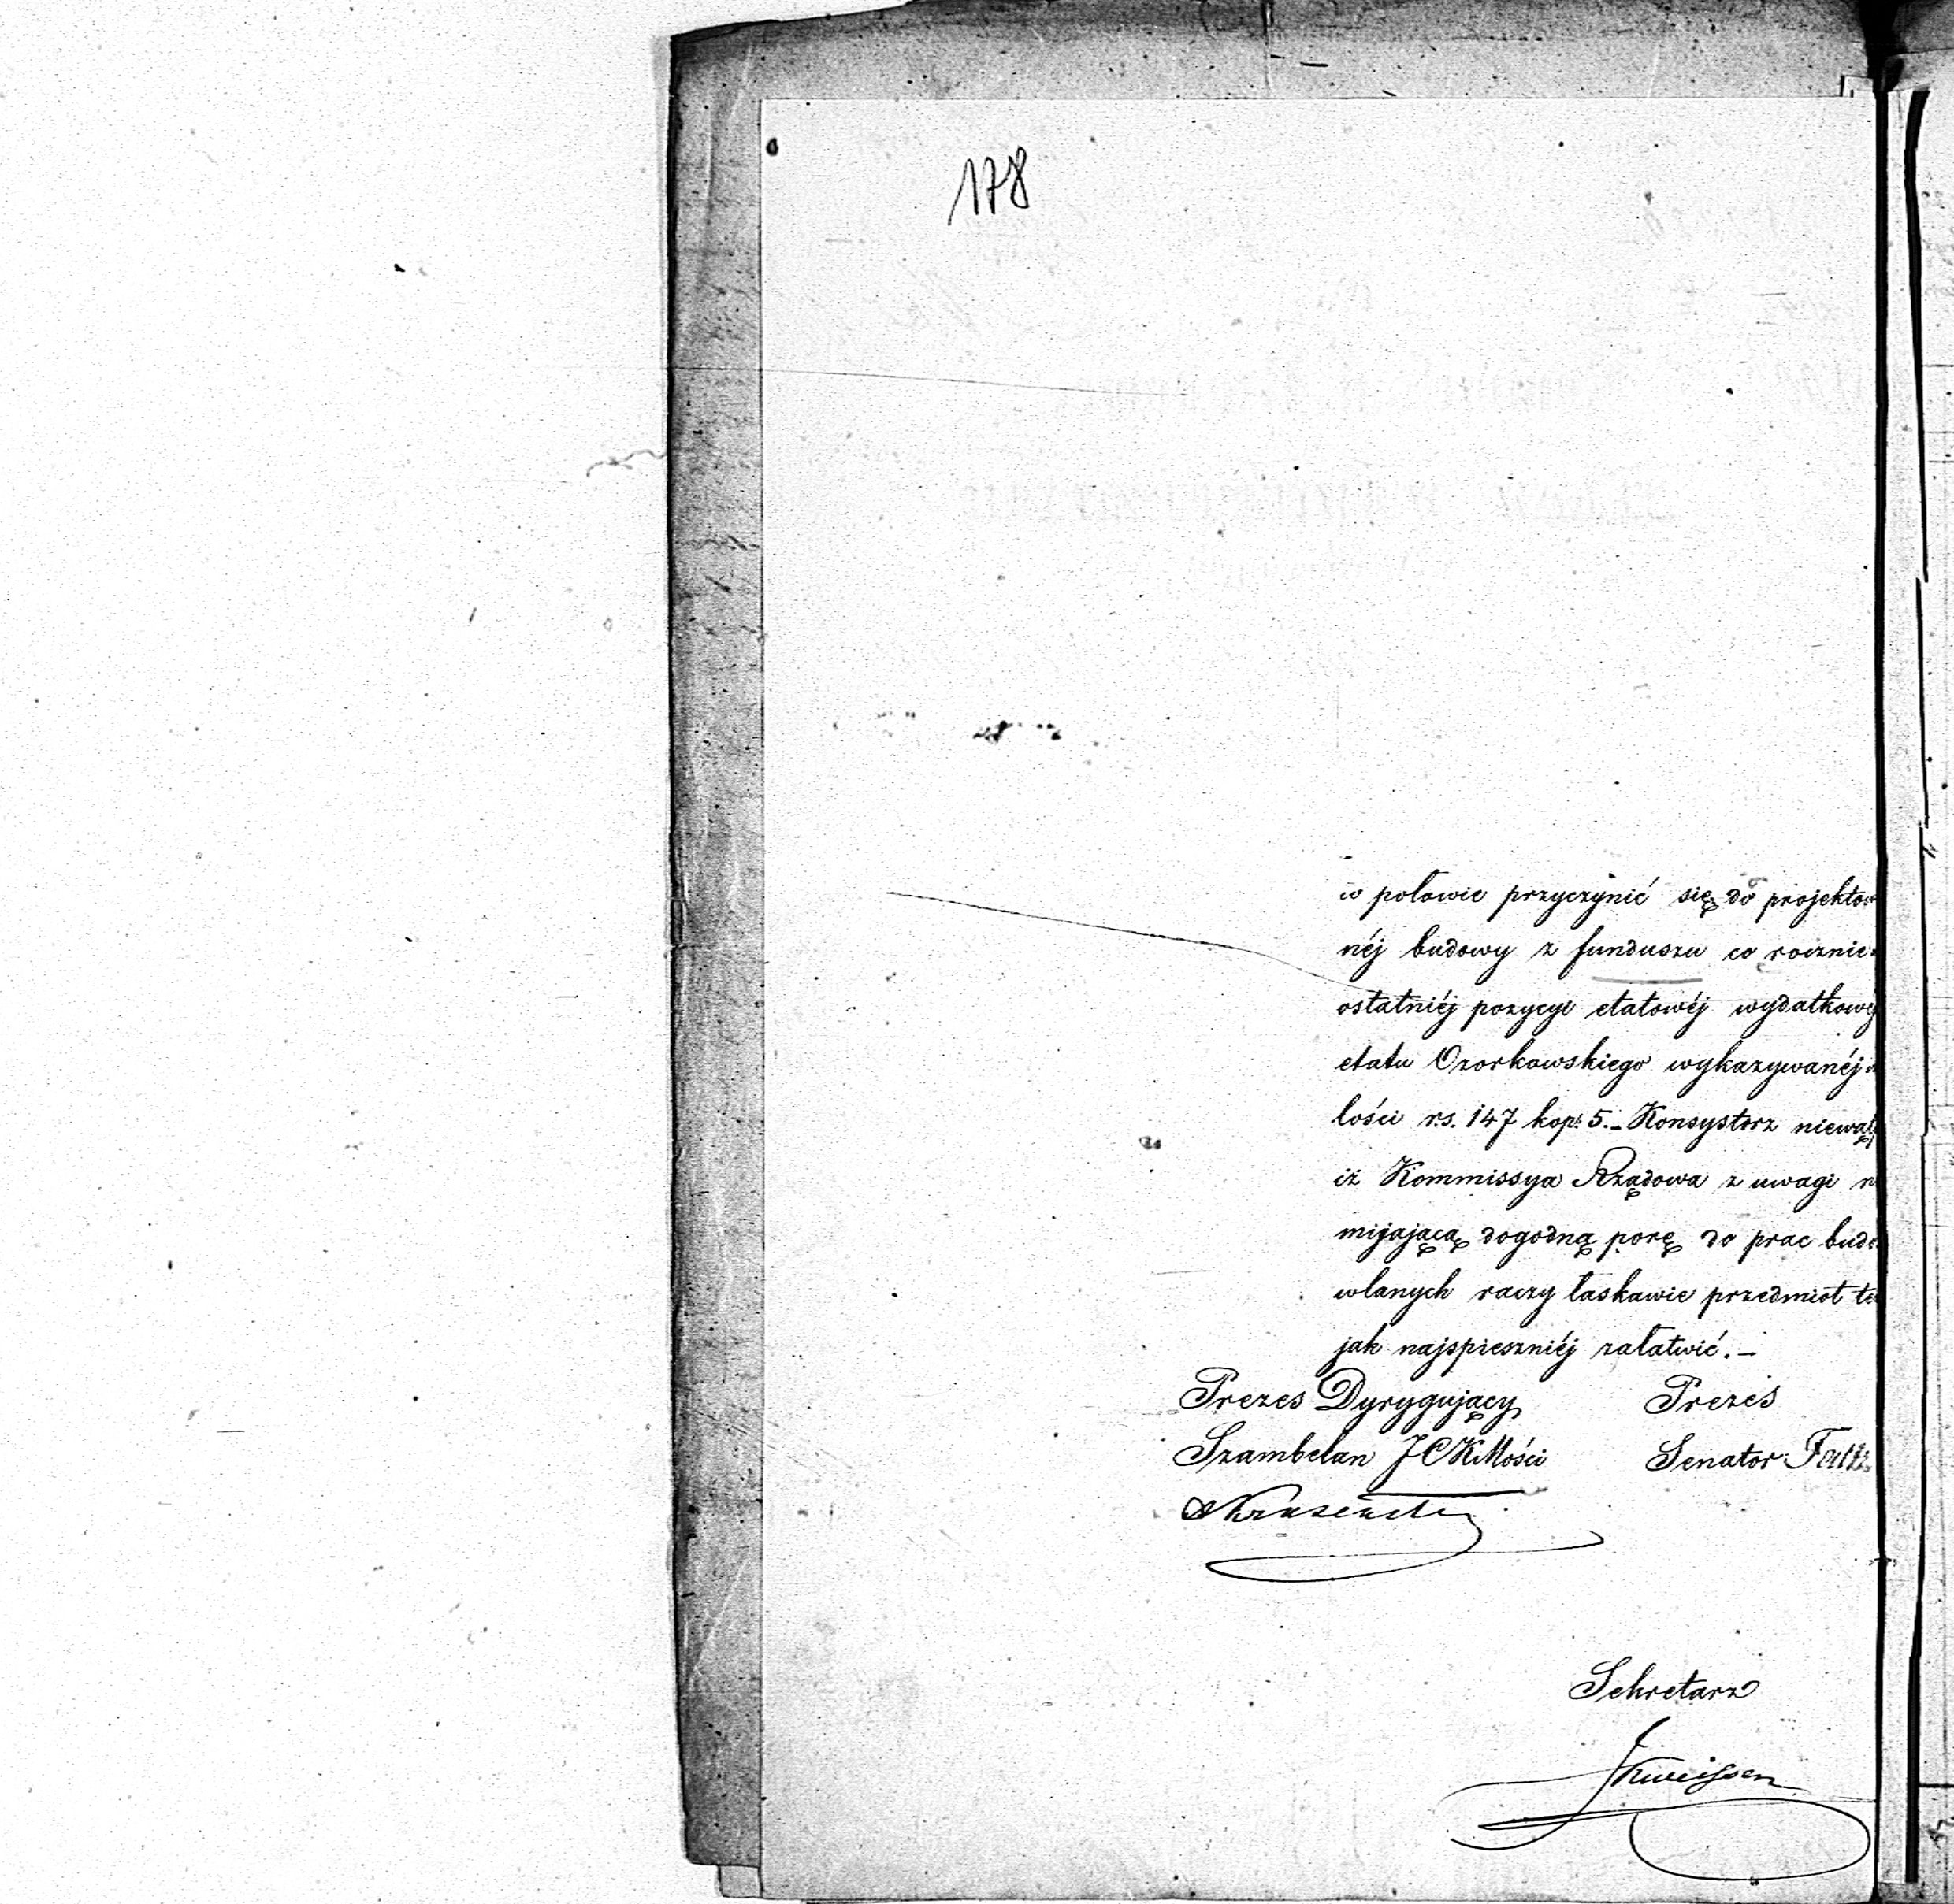 178
w połowie przyczynić się do projektow
néj budowy z funduszu co rocznie
ostatniéj pozycyi etatowéj wydatkowéj
etatu Ozorkowskiego wykazywanéj
lości rs. 147 kop: 5. – Konsystorz niewąt
iż Kommissya Rządowa z uwagi n
mijającą dogodną porę do prac budo
wlanych raczy łaskawie przedmiot te
jak najspieszniéj załatwić. –
Prezes Dyrygujący Prezes
Szambelan JCKMości Senator
Sekretarz